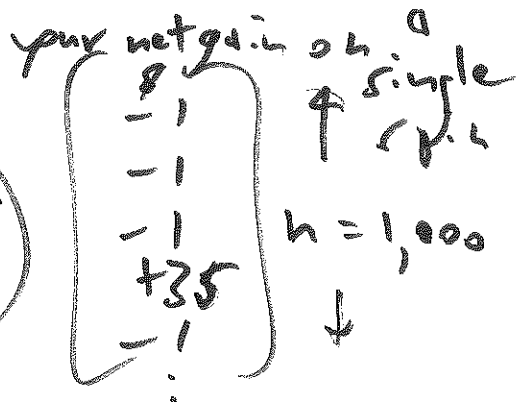 your net gain on a
single
spin
$
-1
-1
-1
+35
-1
n = 1,000